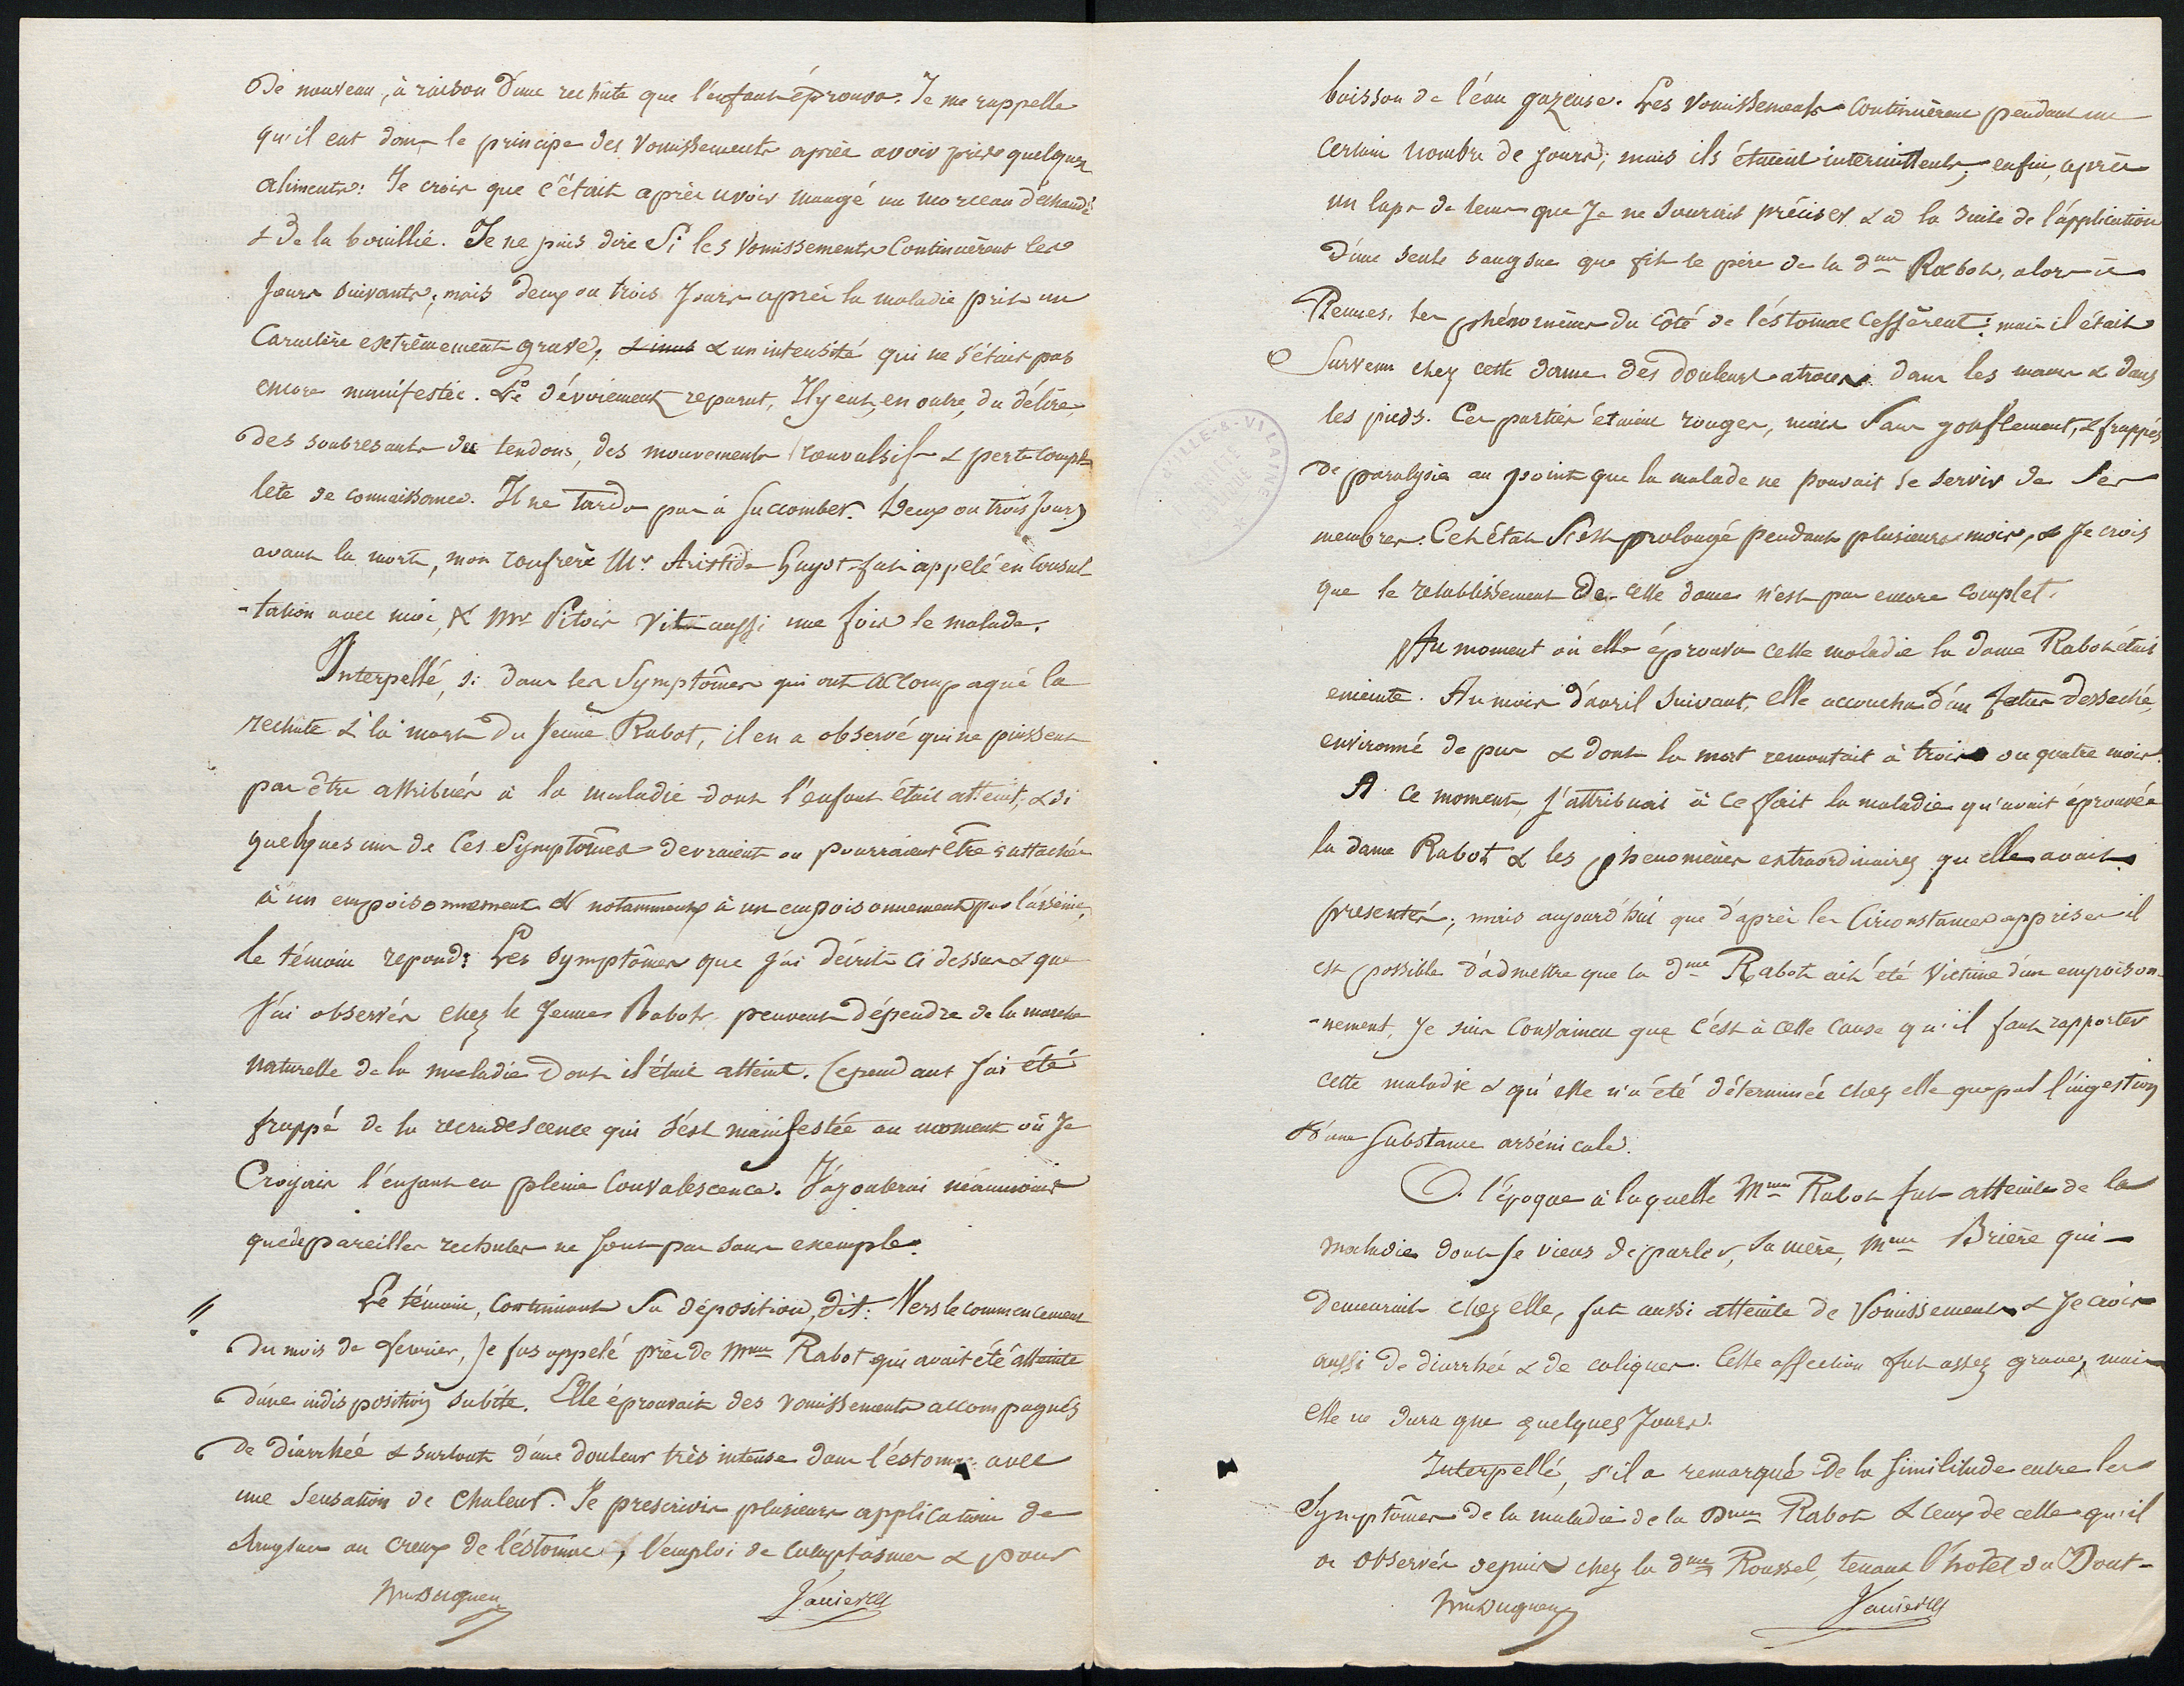 de nouveau, à raison d'une rechûte que l'enfant éprouva. Je me rappelle
qu'il eut dans le principe des vomissements après avoir pris quelques
aliments: Je crois que c'était après avoir mangé un morceau d'échaudé
& de la bouillie. Je ne puis dire Si les vomissements Continuèrent les
Jours suivants; mais deux ou trois Jours après la maladie prit un
Caractère extrêmement grave, & un intensité qui ne s'était pas
encore manifestée. Le dévoiement reparut, Il y eut, en outre, du délire,
des soubresauts de tendons, des mouvements convulsifs & perte comp-
lète de connaissance. Il ne tarda pas à Succomber. Deux ou trois Jours
avant la mort, mon confrère Mr. Aristide Guyot fut appelé en Consul-
-tation avec moi, & Mr Pitois vit aussi une fois le malade.
Interpellé, si dans les Symptômes qui ont accompagné la
rechute & la mort du Jeune Rabot, il en a observé qui ne puissent
pas être attribués à la maladie dont l'enfant était atteint, & si
quelques uns de Ces Symptômes devraient ou pourraient être rattachés
à un empoisonnement & notamment à un empoisonnement par l'arsenic,
le témoin repond: Les symptômes que j'ai décrits ci dessus & que
J'ai observés chez le Jeune Rabot peuvent dépendre de la marche
naturelle de la maladie dont il était atteint. Cependant J'ai été
frappé de la recrudescence qui s'est manifestée au moment où Je
Croyais l'enfant en pleine Convalescence. J'ajouterai néanmoins
que de pareilles rechutes ne sont pas sans exemple.
Le témoin, Continuant Sa déposition, dit: Vers le commencement
du mois de fevrier, Je fus appelé près de Mme Rabot qui avait été atteinte
d'une indisposition subite. Elle éprouvait des vomissements accompagnés
de diarrhée & surtout d'une douleur très intense dans l'éstomac avec
une Sensation de Chaleur. Je prescrivis plusieurs applications de
Sangsues au Creux de l'éstomac, l'emploi de Cataplasmes & pour
boisson de l'éau gazeuse. Les vomissements Continuèrent pendant un
Certain Nombre de Jours; mais ils étaient intermittents; enfin, après
un laps de tems que Je ne Saurais préciser & à la Suite de l'application
d'une Seule Sangsue que fit le père de la dme Rabot, alors à
Rennes, les phénomènes du Côté de l'éstomac Cessèrent; mais il était
Survenu chez cette dame des douleurs atroces dans les mains & dans
les pieds. Ces parties étaient rouges, mais Sans gonflement, & frappés
de paralysie au point que la malade ne pouvait se servir de Ses
membres. Cet état S'est prolongé pendant plusieurs mois, & Je crois
que le rétablissement de cette dame n'est pas encore complet.
Au moment où elle éprouva cette maladie la dame Rabot était
enceinte. Au mois d'avril Suivant, elle accoucha d'un fœtus desseché,
environné de pus & dont la mort remontait à trois ou quatre mois.
A ce moment, J'attribuai à ce fait la maladie qu'avait éprouvée
la dame Rabot & les phenomènes extraordinaires qu'elle avait
presentés; mais aujourd'hui que d'après les Circonstances apprises il
est possible d'admettre que la dme Rabot ait été Victime d'un empoison-
-nement, Je suis Convaincu que c'est à cette Cause qu'il faut rapporter
cette maladie & qu'elle n'a été déterminée chez elle que par l'ingestion
d'une Substance arsénicale.
A l'époque à laquelle Mme Rabot fut atteinte de la
maladie dont Je viens de parler, Sa mère, Mme Brière qui
demeurait chez elle, fut aussi atteinte de Vomissements & Je crois
aussi de diarrhée & de coliques. Cette affection fut assez grave, mais
elle ne dura que quelques Jours.
Interpellé, s'il a remarqué de la Similitude entre les
Symptômes de la maladie de la Dme Rabot & ceux de celle qu'il
a observés depuis chez la dme Roussel, tenant l'hotel du Bout-